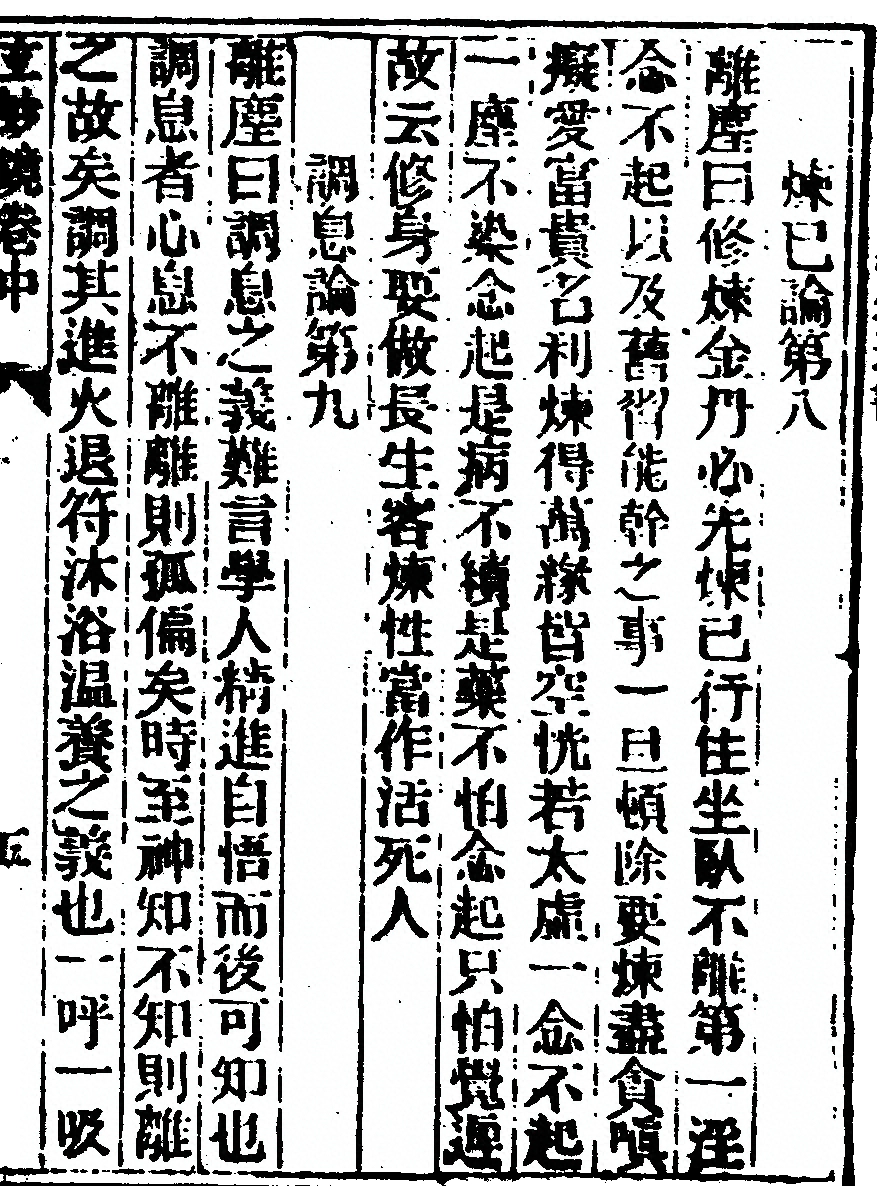 煉己論第八
離塵曰修煉金丹必先煉己行住坐臥不離第一淫
念不起以及舊習能幹之事一旦頓除要煉盡貪嗔
癡愛富貴名利煉得萬緣皆空恍若太虛一念不起
一塵不染念起是病不續是藥不怕念起只怕覺遲
故云修身要做長生客煉性當作活死人
調息論第九
離塵曰調息之義難言學人精進自悟而後可知也
調息者心息不離離則孤偏矣時至神知不知則離
之故矣調其進火退符沐浴温養之義也一呼一吸
玄妙鏡卷中
五